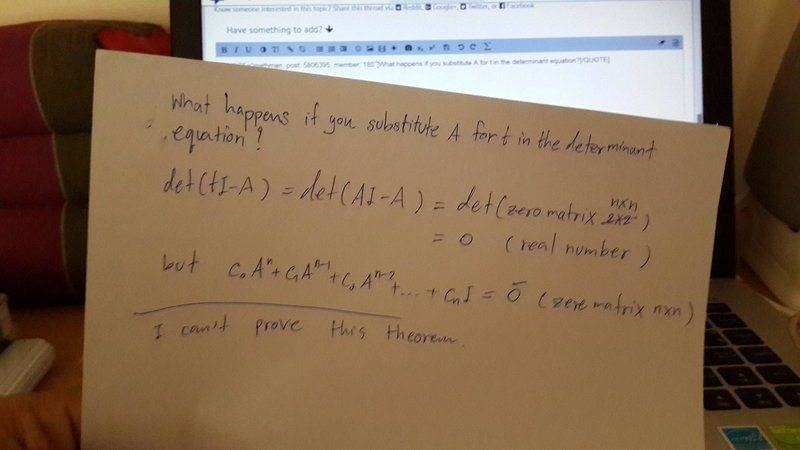 Know someone interested in this topic? Share this thread via Reddit, Google+, Twitter, or Facebook
Have something to add?
B I U
post: 5806395, member: What happens if you substitute A for t in the determinant equation?[/QUOTE]
What happens if you substitute A for t in the determinant
equation?
det(tI-A) = det(AI-A) = det(zero matrix n×n 2×2)
= 0 (real number)
but C₀Aⁿ + C₁Aⁿ⁻¹ + C₀Aⁿ⁻² + ... + CₙI = Ō (zero matrix n×n)
I can't prove this theorem.